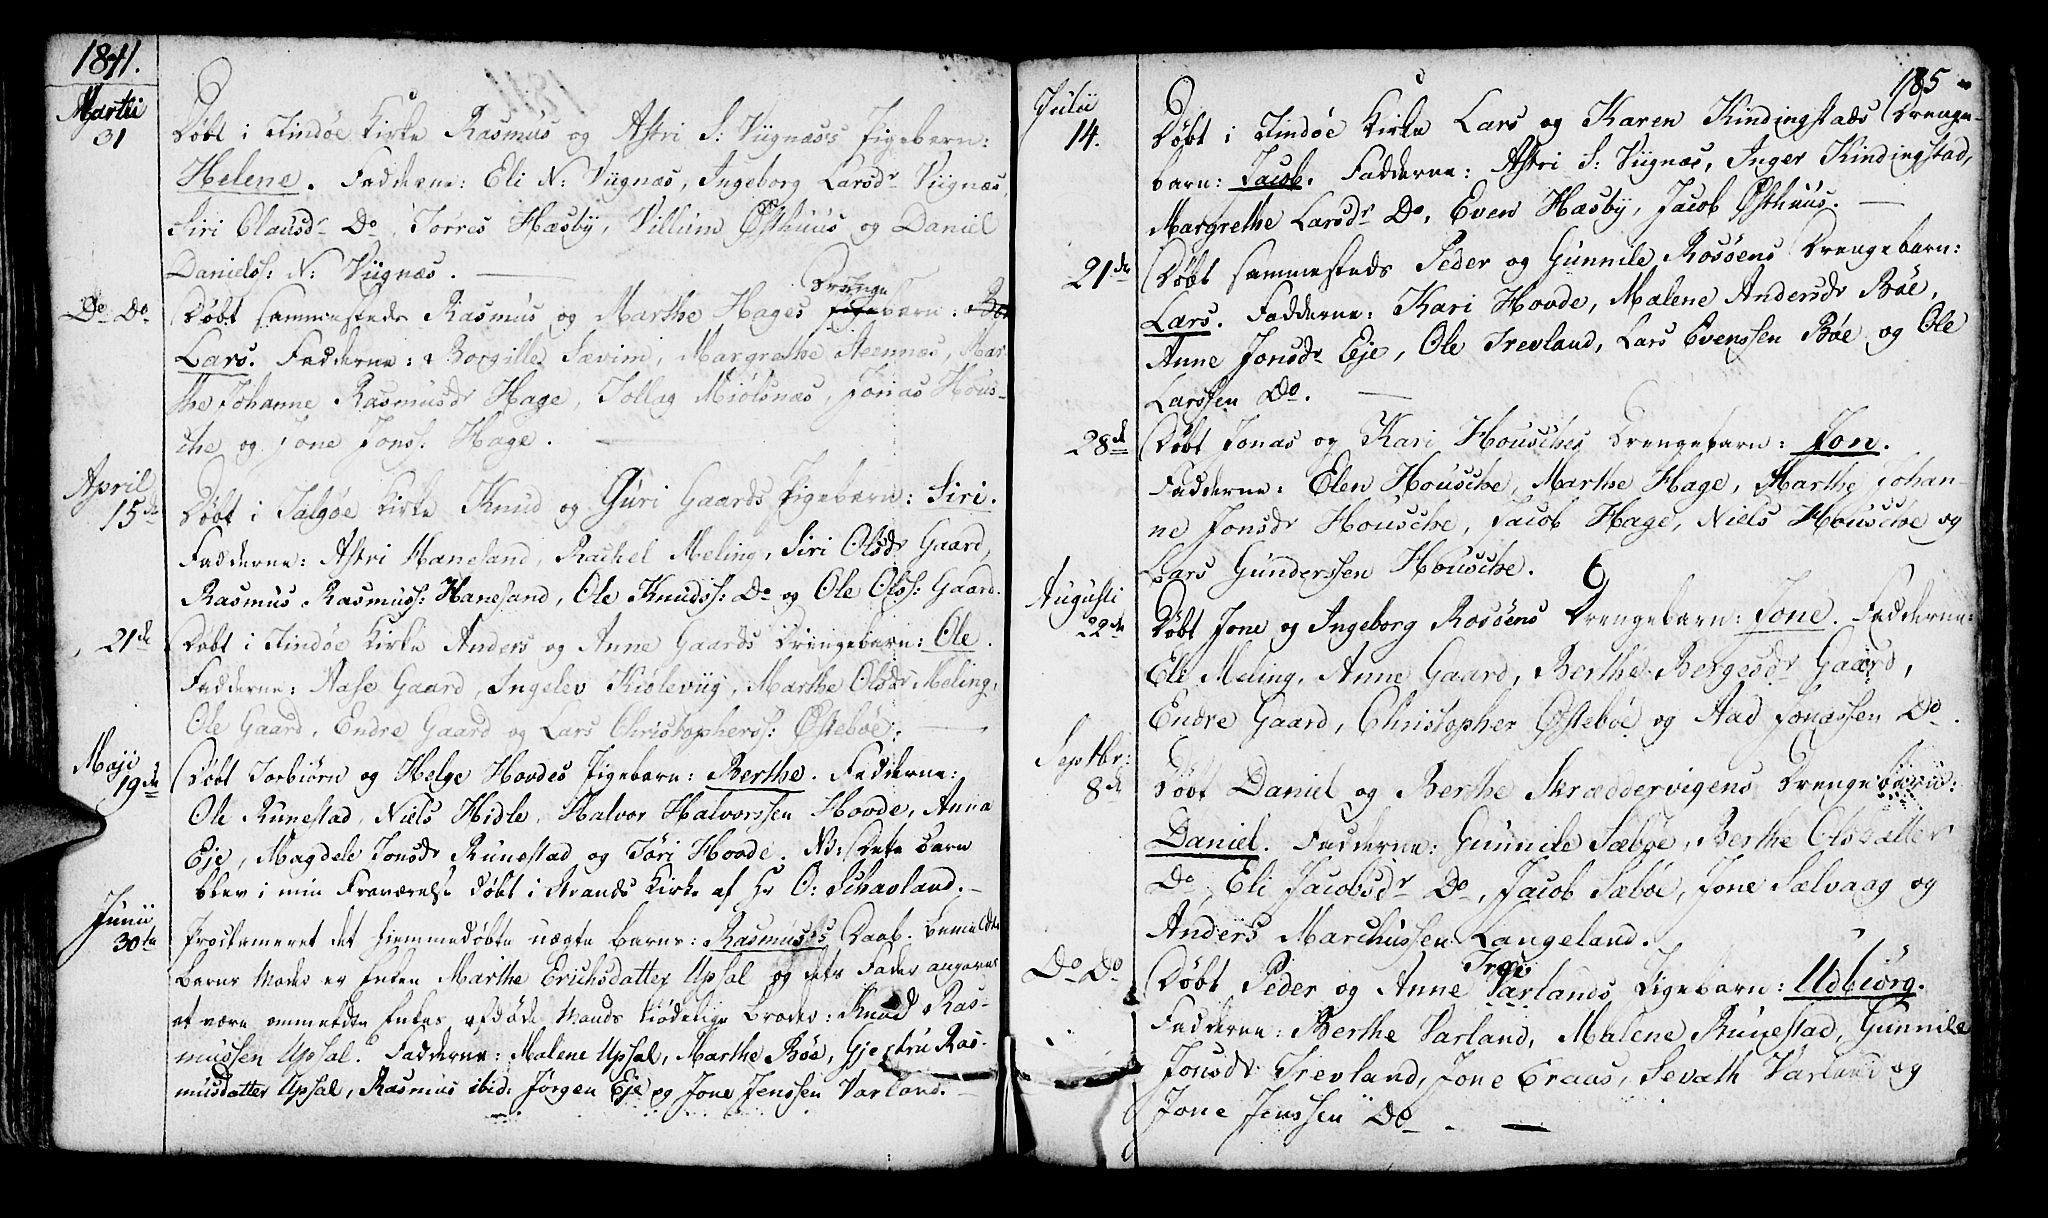 1811.
Martii
31
Døbt i Findøe Kirke Rasmus og Astri S: Viignæs's Pigebarn:
Helene. Fadderne: Eli N: Viignæs, Ingeborg Larsdr Viignæs,
Siri Olausdr Do, Torres Hæsby, Villum Østhuus og Daniel
Daniels: N: Viignæs.
Do Do
Døbt sammesteds Rasmus og Marthe Hages Drenge barn:
Lars. Fadderne: Borgille Sævim, Margrethe Steennæs, Mar-
the Johanne Rasmusdr Hage, Tollag Miølsnæs, Jonas Hous-
che og Jone Jonss: Hage.
April
15de
Døbt i Talgøe Kirke Knud og Guri Gaards Pigebarn: Siri.
Fadderne: Astri Hanesand, Rachel Meling, Siri Olsdr Gaard,
Rasmus Rasmuss: Hanesand, Ole Knudss: Do og Ole Olss: Gaard.
21de
Døbt i Findøe Kirke Anders og Anne Gaards Drengebarn: Ole.
Fadderne: Aase Gaard, Ingelev Kiølevig, Marthe Olsdr Meling,
Ole Gaard, Endre Gaard og Lars Christophers: Østebøe.
Maji
19de
Døbt Torbiørn og Helge Hovdes Pigebarn: Berthe. Fadderne:
Ole Runestad, Niels Hidle, Halvor Halvorssen Hovde, Anna
Eje, Magdele Jonsdr Runestad og Tøri Hovde. NB: Dette Barn
blev i min Fraværelse døbt i Strands Kirke af Hr O: Schavland.
Junii
30te
Proclameret det hiemmedøbte uægte Barns: Rasmuses Daab. bemeldte
Barns Moder er Enken Marthe Erichsdatter Upsal og dets Fader angaves
at være ommeldte Enkes afdøde Mands kiødelige Broder: Knud Ras-
mussen Upsal. Fadderne: Malene Upsal, Marthe Bøe, Gjertru Ras-
musdatter Upsal, Rasmus ibid: Jørgen Eje og Jone Jenssen Varland.
185
Julii
14.
Døbt i Findøe Kirke Lars og Karen Kindingstads Drenge-
barn: Jacob. Fadderne: Astri S: Viignæs, Inger Kindingstad,
Margrethe Larsdr Do, Even Hæsby, Jacob Østhuus.
21de
Døbt sammesteds Peder og Gunnile Rosøens Drengebarn:
Lars. Fadderne: Kari Hovde, Malene Andersdr Bøe,
Anne Jonsdr Eje, Ole Trevland, Lars Evenssen Bøe og Ole
Larssen Do.
28de
Døbt Jonas og Kari Housches Drengebarn: Jon.
Fadderne: Elen Housche, Marthe Hage, Marthe Johan-
ne Jonsdr Housche, Jacob Hage, Niels Housche og
Lars Gunderssen Housche.
Augusti
22de
Døbt Jone og Ingeborg Rosøens Drengebarn: Jone. Fadderne:
Eli Meling, Anne Gaard, Berthe Bergesdr Gaard,
Endre Gaard, Christopher Østebøe og Aad Jonassen Do.
Septbr:
8de
Døbt Daniel og Berthe Skræddervigens Drengebarn:
Daniel. Fadderne: Gunnile Sæbøe, Berthe Olsdatter
Do, Eli Jacobsdr Do, Jacob Sæbøe, Jone Sælvaag og
Anders Marchussen Langeland.
Do Do
Døbt Peder og Anne Varlands Pigebarn: Udbiørg.
Fadderne: Berthe Varland, Malene Runestad, Gunnile
Jonsdr Trevland, Jone Eraas, Sevath Varland og
Jone Jenssen Do